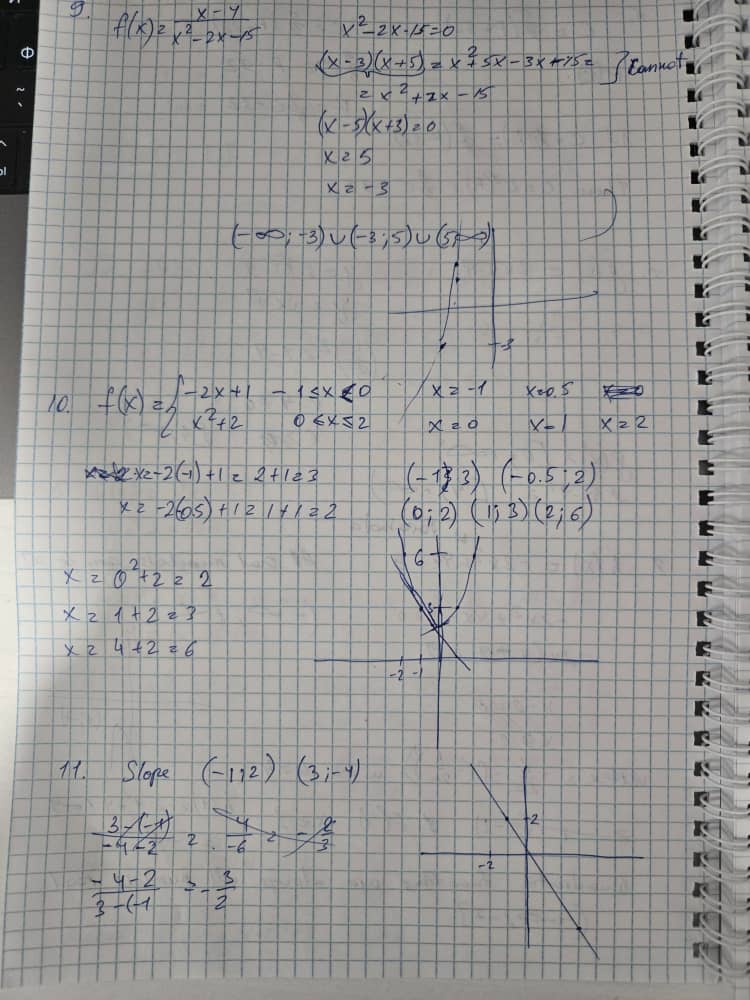 9. f(x) = x-4 / x²-2x-15    x²-2x-15=0
(x-3)(x+5) = x²+5x-3x+15= } Cannot
= x²+2x-15
(x-5)(x+3)=0
x=5
x=-3
(-∞;-3)∪(-3;5)∪(5;∞)
-3
10. f(x) = { -2x+1  -1≤x<0    x=-1  x=0.5  x=0
x²+2  0≤x≤2    x=0  x=1  x=2
x=-2(-1)+1=2+1=3    (-1;3) (-0.5;2)
x=-2(-0.5)+1=1+1=2    (0;2) (1;3) (2;6)
6
x=0²+2=2
x=1+2=3    3
x=4+2=6
-2 -1
11. Slope (-1;2) (3;-4)
3-(-1) / -4-2 = 4 / -6 = -2/3    2
-4-2 / 3-(-1 = -3/2    -2